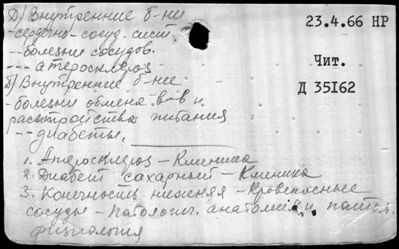 Д) Внутренние б-ни
- сердечно-сосуд. сист.
-- болезни сосудов.
--- атеросклероз
Б) Внутренние б-ние
- болезни обмена в-в и
расстройства питания
-- диабеты.
1. Атеросклероз – Клиника
2. Диабет сахарный – Клиника
3. Конечность нижняя – Кровеносные
сосуды – патологич. анатомия и патол.
физиология
23.4.66 НР
Чит.
Д 35162